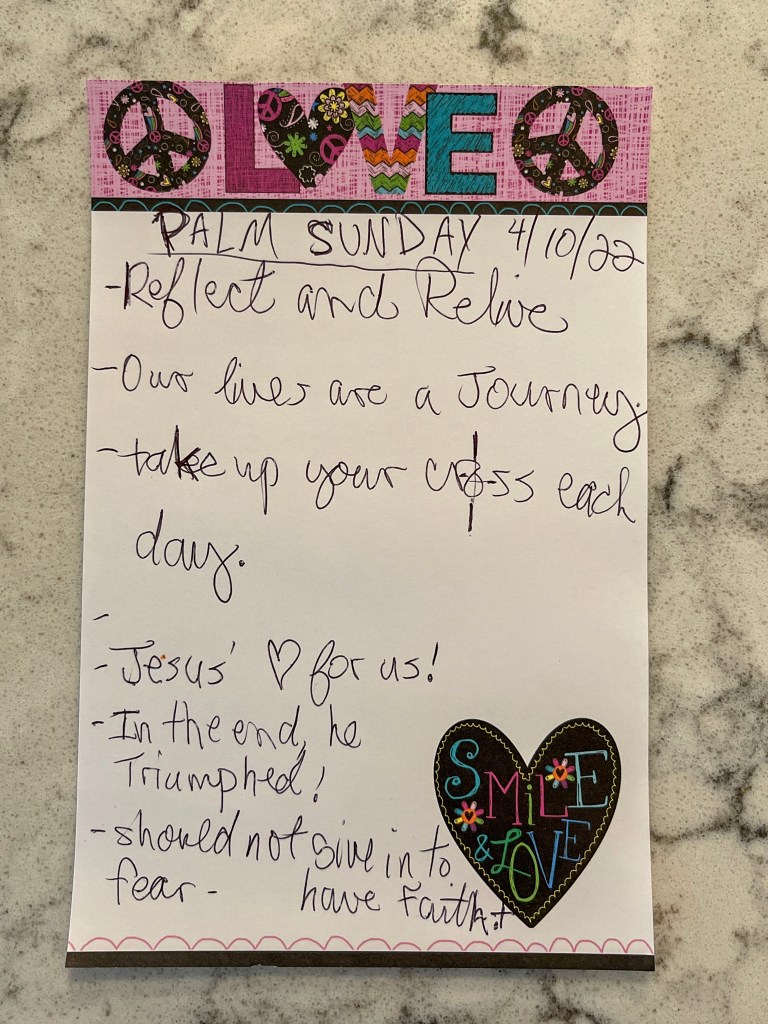 LOVE
PALM SUNDAY 4/10/22
-Reflect and Relive
-Our lives are a Journey.
-take up your cross each
day.
-
-Jesus' ♡ for us!
-In the end, he
Triumphed!
-should not give in to
fear - have Faith.+
SMiLE
& LOVE